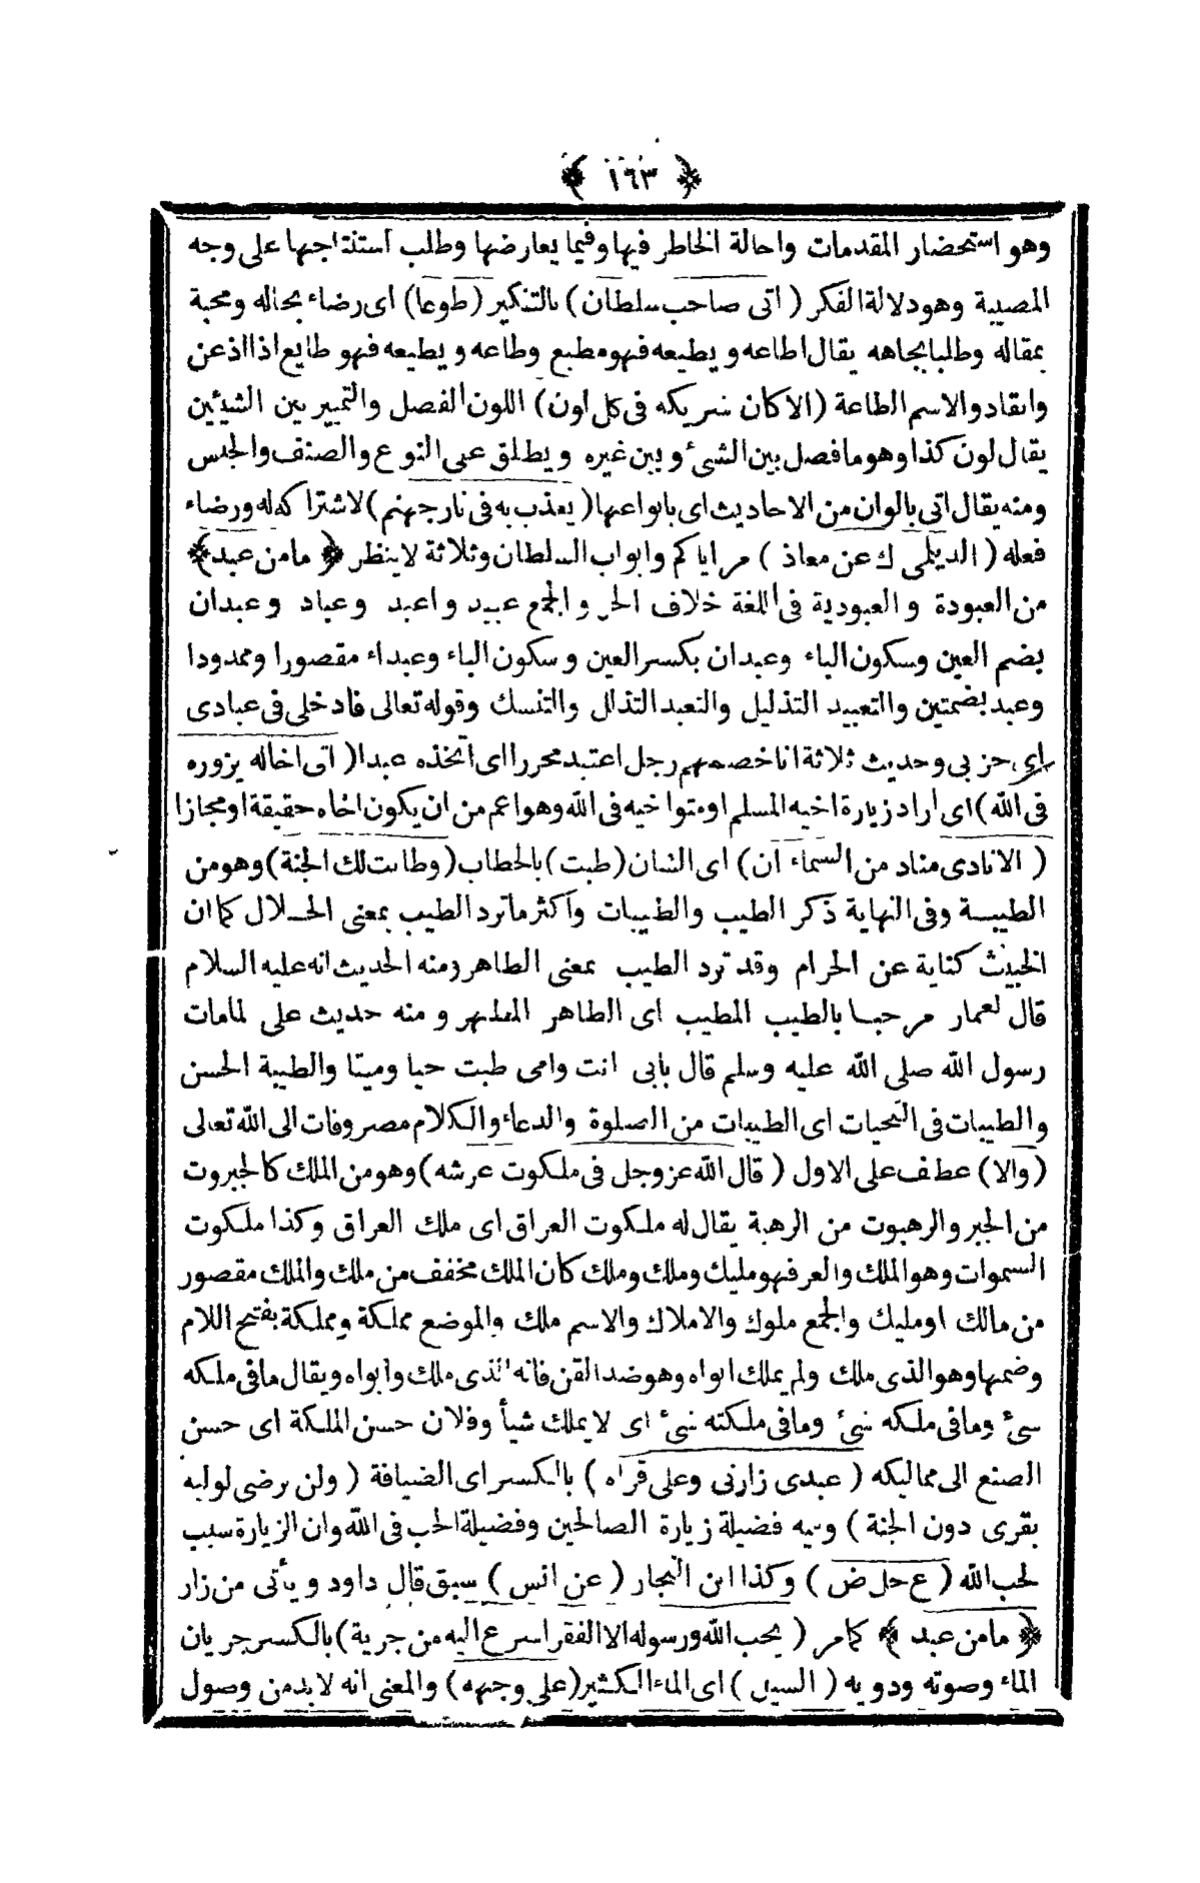 ﴿ ١٦٣ ﴾
وهو استحضار المقدمات واحالة الخاطر فيها وفيما يعارضها وطلب استنتاجها على وجه
المصيبة وهو دلالة الفكر ( اتى صاحب سلطان ) بالتنكير ( طوعا ) اى رضاء بحاله ومحبة
بمقاله وطلبا بجاهه يقال اطاعه ويطيعه فهو مطيع وطاعه ويطيعه فهو طايع اذا اذعن
وانقاد والاسم الطاعة ( الا كان شريكه فى كل لون ) اللون الفصل والتمييز بين الشيئين
يقال لون كذا وهو ما فصل بين الشئ وبين غيره ويطلق على النوع والصنف والجنس
ومنه يقال اتى بالوان من الاحاديث اى بانواعها ( يعذب به فى نار جهنم ) لاشتراكه له ورضاء
فعله ( الديلمى ك عن معاذ ) مر اياكم وابواب السلطان وثلاثة لا ينظر ﴿ ما من عبد ﴾
من العبودة والعبودية فى اللغة خلاف الحر والجمع عبيد واعبد وعباد وعبدان
بضم العين وسكون الباء وعبدان بكسر العين وسكون الباء وعبداء مقصورا وممدودا
وعبد بضمتين والتعبيد التذليل والتعبد التذلل والتنسك وقوله تعالى فادخلى فى عبادى
اى حزبى وحديث ثلاثة انا خصمهم رجل اعتبد محررا اى اتخذه عبدا ( اتى اخاله يزوره
فى الله ) اى اراد زيارة اخيه المسلم او متواخيه فى الله وهو اعم من ان يكون اخاه حقيقة او مجازا
( الا نادى مناد من السماء ان ) اى الشان ( طبت ) بالخطاب ( وطابت لك الجنة ) وهو من
الطيبة وفى النهاية ذكر الطيب والطيبات واكثر ما ترد الطيب بمعنى الحلال كما ان
الخبيث كناية عن الحرام وقد ترد الطيب بمعنى الطاهر ومنه الحديث انه عليه السلام
قال لعمار مرحبا بالطيب المطيب اى الطاهر المطهر ومنه حديث على لما مات
رسول الله صلى الله عليه وسلم قال بابى انت وامى طبت حيا وميتا والطيبة الحسن
والطيبات فى التحيات اى الطيبات من الصلوة والدعاء والكلام مصروفات الى الله تعالى
( والا ) عطف على الاول ( قال الله عز وجل فى ملكوت عرشه ) وهو من الملك كالجبروت
من الجبر والرهبوت من الرهبة يقال له ملكوت العراق اى ملك العراق وكذا ملكوت
السموات وهو الملك والعز فهو مليك وملك وملك كان الملك مخفف من ملك والملك مقصور
من مالك او مليك والجمع ملوك والاملاك والاسم ملك والموضع مملكة ومملكة بفتح اللام
وضمها وهو الذى ملك ولم يملك ابواه وهو ضد القن فانه الذى ملك وابواه ويقال ما فى ملكه
شئ وما فى ملكه شئ وما فى ملكته شئ اى لا يملك شيأ وفلان حسن الملكة اى حسن
الصنع الى مماليكه ( عبدى زارنى وعلى قراه ) بالكسر اى الضيافة ( ولن يرضى لوليه
بقرى دون الجنة ) وفيه فضيلة زيارة الصالحين وفضيلة الحب فى الله وان الزيارة سبب
لحب الله ( ع حل ض ) وكذا ابن النجار ( عن انس ) سبق قال داود ويأتى من زار
﴿ ما من عبد ﴾ كما مر ( يحب الله ورسوله الا الفقر اسرع اليه من جرية ) بالكسر جريان
الماء وصوته ودويه ( السيل ) اى الماء الكثير ( على وجهه ) والمعنى انه لا بد من وصول